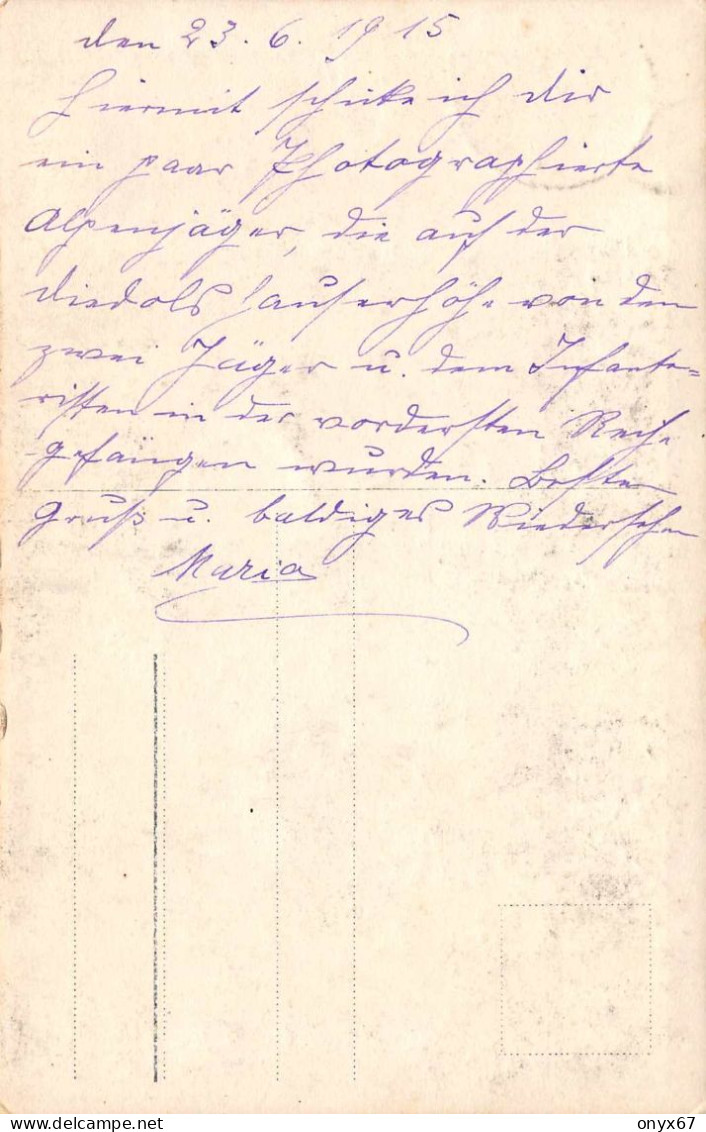 den 23. 6. 1915
Hiermit schicke ich dir
ein paar Photographierte
Alpenjäger, die auf der
Diedolshauserhöhe von den
zwei Jäger u. dem Infante-
risten in der vordersten Reihe
gefangen wurden. Besten
Gruß u. baldiges Wiedersehen
Maria
delcampe.net
onyx67